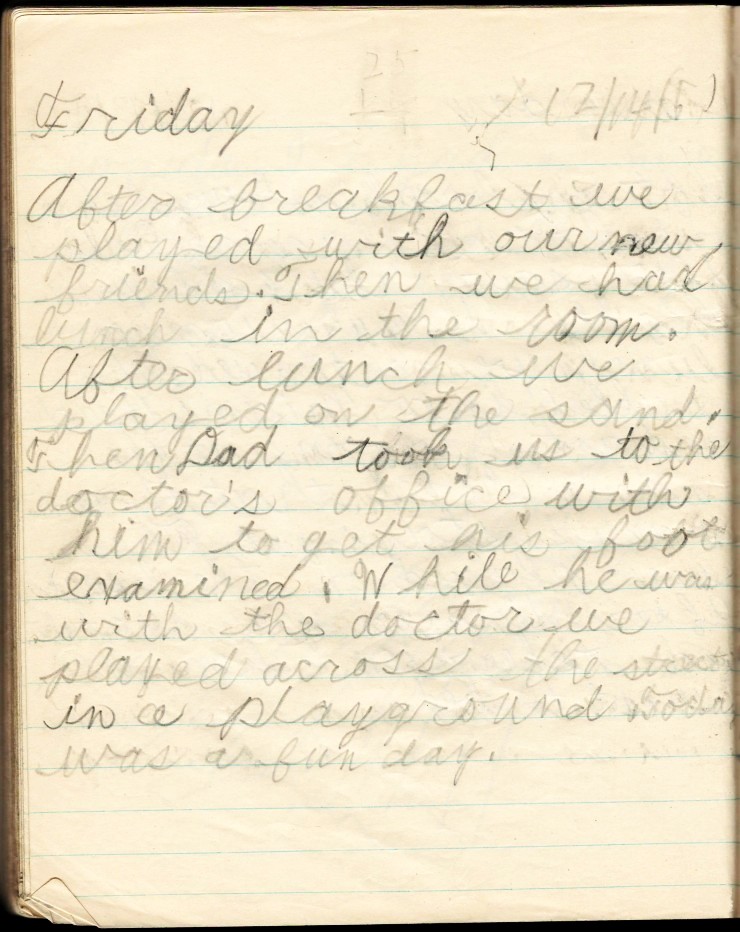 Friday
After breakfast we
played with our new
friends. Then we had
lunch in the room.
After lunch we
played on the sand.
Then Dad took us to the
doctor's office with
him to get his foot
examined. While he was
with the doctor we
played across the street
in a playground. Today
was a fun day.